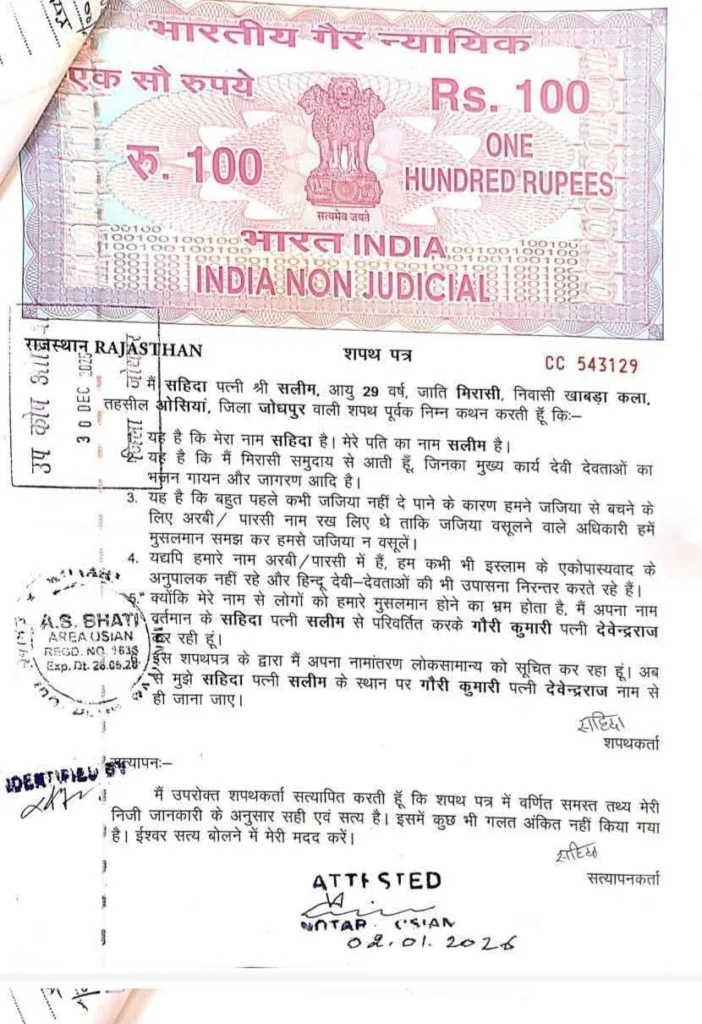 भारतीय गैर न्यायिक
एक सौ रुपये
Rs. 100
रु. 100
ONE
HUNDRED RUPEES
सत्यमेव जयते
भारत INDIA
INDIA NON JUDICIAL
राजस्थान RAJASTHAN
शपथ पत्र
CC 543129
उप कोष
30 DEC 2025
जिला
मैं सहिदा पत्नी श्री सलीम, आयु 29 वर्ष, जाति मिरासी, निवासी खाबड़ा कला,
तहसील ओसियां, जिला जोधपुर वाली शपथ पूर्वक निम्न कथन करती हूँ कि:–
यह है कि मेरा नाम सहिदा है। मेरे पति का नाम सलीम है।
यह है कि मैं मिरासी समुदाय से आती हूँ, जिनका मुख्य कार्य देवी देवताओं का
भजन गायन और जागरण आदि है।
3. यह है कि बहुत पहले कभी जजिया नहीं दे पाने के कारण हमने जजिया से बचने के
लिए अरबी/ पारसी नाम रख लिए थे ताकि जजिया वसूलने वाले अधिकारी हमें
मुसलमान समझ कर हमसे जजिया न वसूलें।
4. यद्यपि हमारे नाम अरबी/पारसी में हैं, हम कभी भी इस्लाम के एकोपास्यवाद के
अनुपालक नहीं रहे और हिन्दू देवी–देवताओं की भी उपासना निरन्तर करते रहे हैं।
5. क्योंकि मेरे नाम से लोगों को हमारे मुसलमान होने का भ्रम होता है, मैं अपना नाम
वर्तमान के सहिदा पत्नी सलीम से परिवर्तित करके गौरी कुमारी पत्नी देवेन्द्रराज
कर रही हूं।
इस शपथपत्र के द्वारा मैं अपना नामांतरण लोकसामान्य को सूचित कर रहा हूं। अब
से मुझे सहिदा पत्नी सलीम के स्थान पर गौरी कुमारी पत्नी देवेन्द्रराज नाम से
ही जाना जाए।
A.S. BHATI
AREA OSIAN
REGD. NO. 1636
Exp. Dt. 28.05.28
सहिदा
शपथकर्ता
IDENTIFIED BY
सत्यापन:–
मैं उपरोक्त शपथकर्ता सत्यापित करती हूँ कि शपथ पत्र में वर्णित समस्त तथ्य मेरी
निजी जानकारी के अनुसार सही एवं सत्य है। इसमें कुछ भी गलत अंकित नहीं किया गया
है। ईश्वर सत्य बोलने में मेरी मदद करें।
सहिदा
सत्यापनकर्ता
ATTESTED
NOTAR OSIAN
02.01.2026